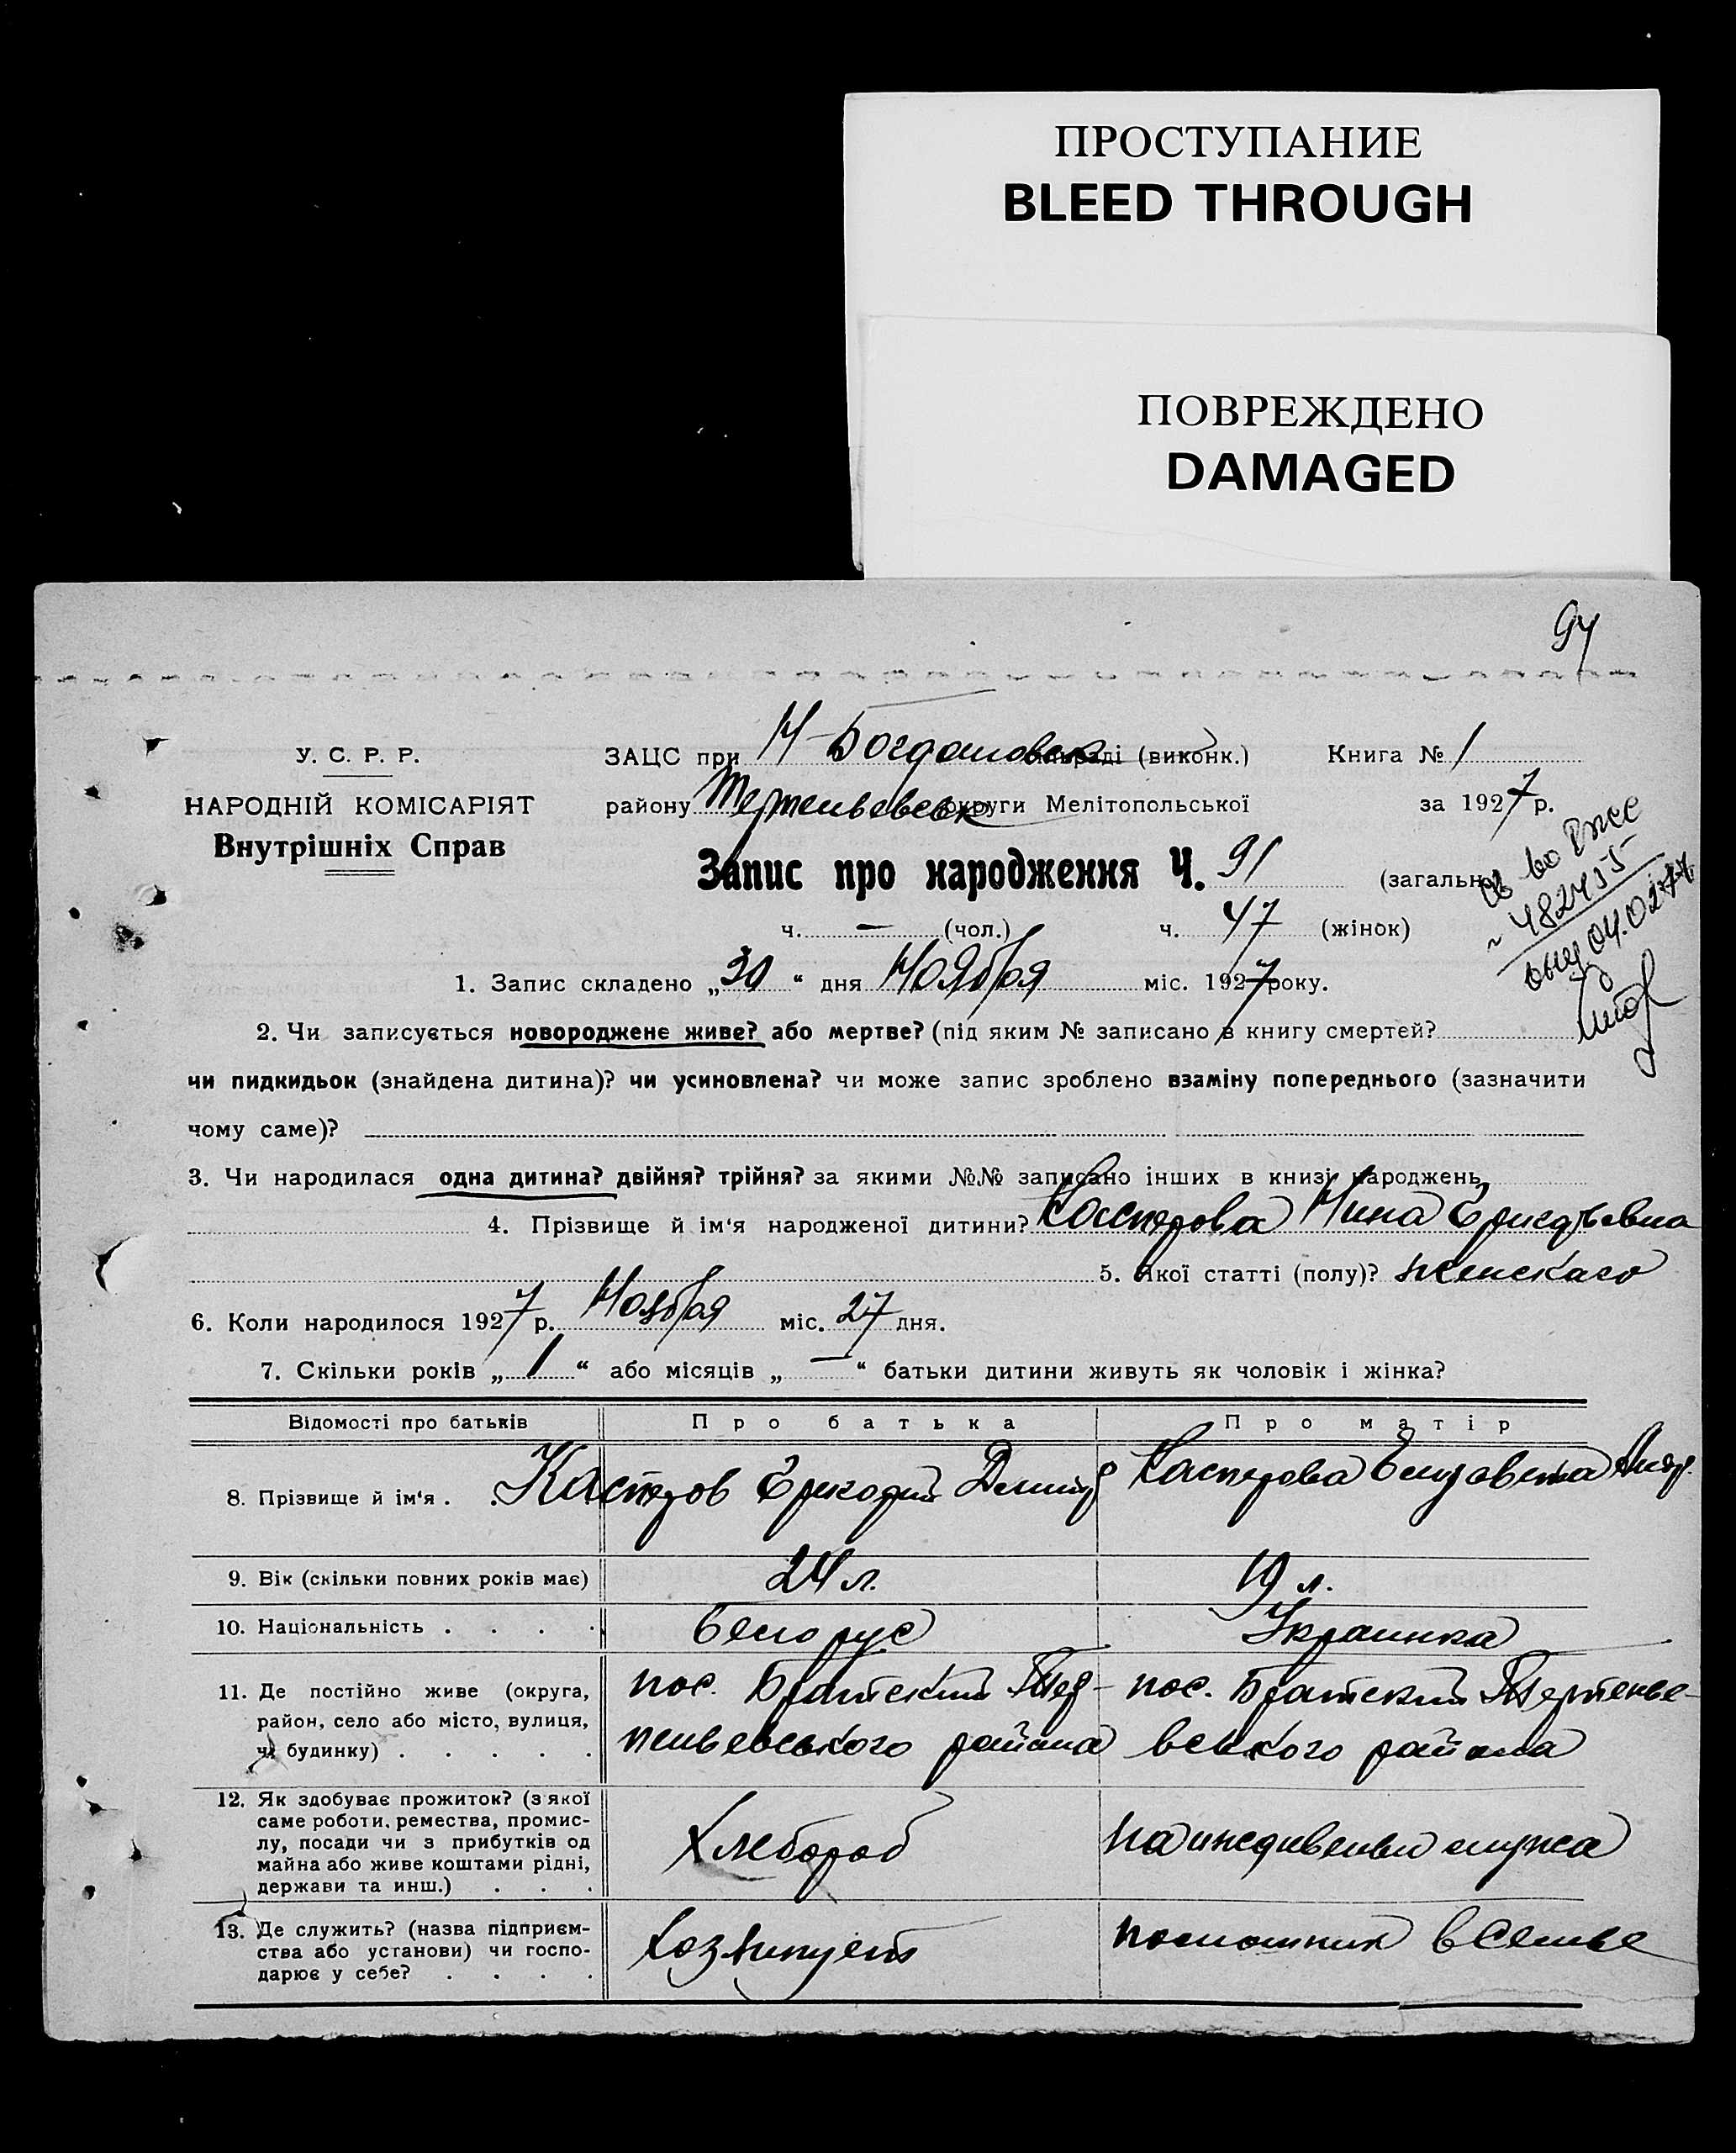 ПРОСТУПАНИЕ
BLEED THROUGH
ПОВРЕЖДЕНО
DAMAGED
94
У. С. Р. Р.
НАРОДНІЙ КОМІСАРІЯТ
Внутрішніх Справ
ЗАЦС при Н-Богдановск раді (виконк.) Книга № 1
району округи Мелітопольської за 1927 р.
Запис про народження Ч. 91 (загальн.)
ч. — (чол.) ч. 47 (жінок)
482455
04.02.77
1. Запис складено „30“ дня Ноября міс. 1927 року.
2. Чи записується новороджене живе? або мертве? (під яким № записано в книгу смертей?
чи пидкидьок (знайдена дитина)? чи усиновлена? чи може запис зроблено взаміну попереднього (зазначити
чому саме)?
3. Чи народилася одна дитина? двійня? трійня? за якими №№ записано інших в книзі народжень
4. Прізвище й ім'я народженої дитини? Касперова Нина
5. Якої статті (полу)? женскаго
6. Коли народилося 1927 р. Ноября міс. 27 дня.
7. Скільки років „1“ або місяців „—“ батьки дитини живуть як чоловік і жінка?
Відомості про батьків Про батька Про матір
8. Прізвище й ім'я . . Касперов Дмитр Касперова Елизавета Андр.
9. Вік (скільки повних років має) 24 л. 19 л.
10. Національність . . . . белорус Украинка
11. Де постійно живе (округа,
район, село або місто, вулиця,
чи будинку) . . . . .
пос. Братский Тер-
пеньевського района
пос. Братский Терпенье-
вського района
12. Як здобуває прожиток? (з якої
саме роботи, ремества, промис-
лу, посади чи з прибутків од
майна або живе коштами рідні,
держави та инш.) . . .
Хлебороб
на иждивеньи мужа
13. Де служить? (назва підприєм-
ства або установи) чи госпо-
дарює у себе? . . . .
помошник в семье